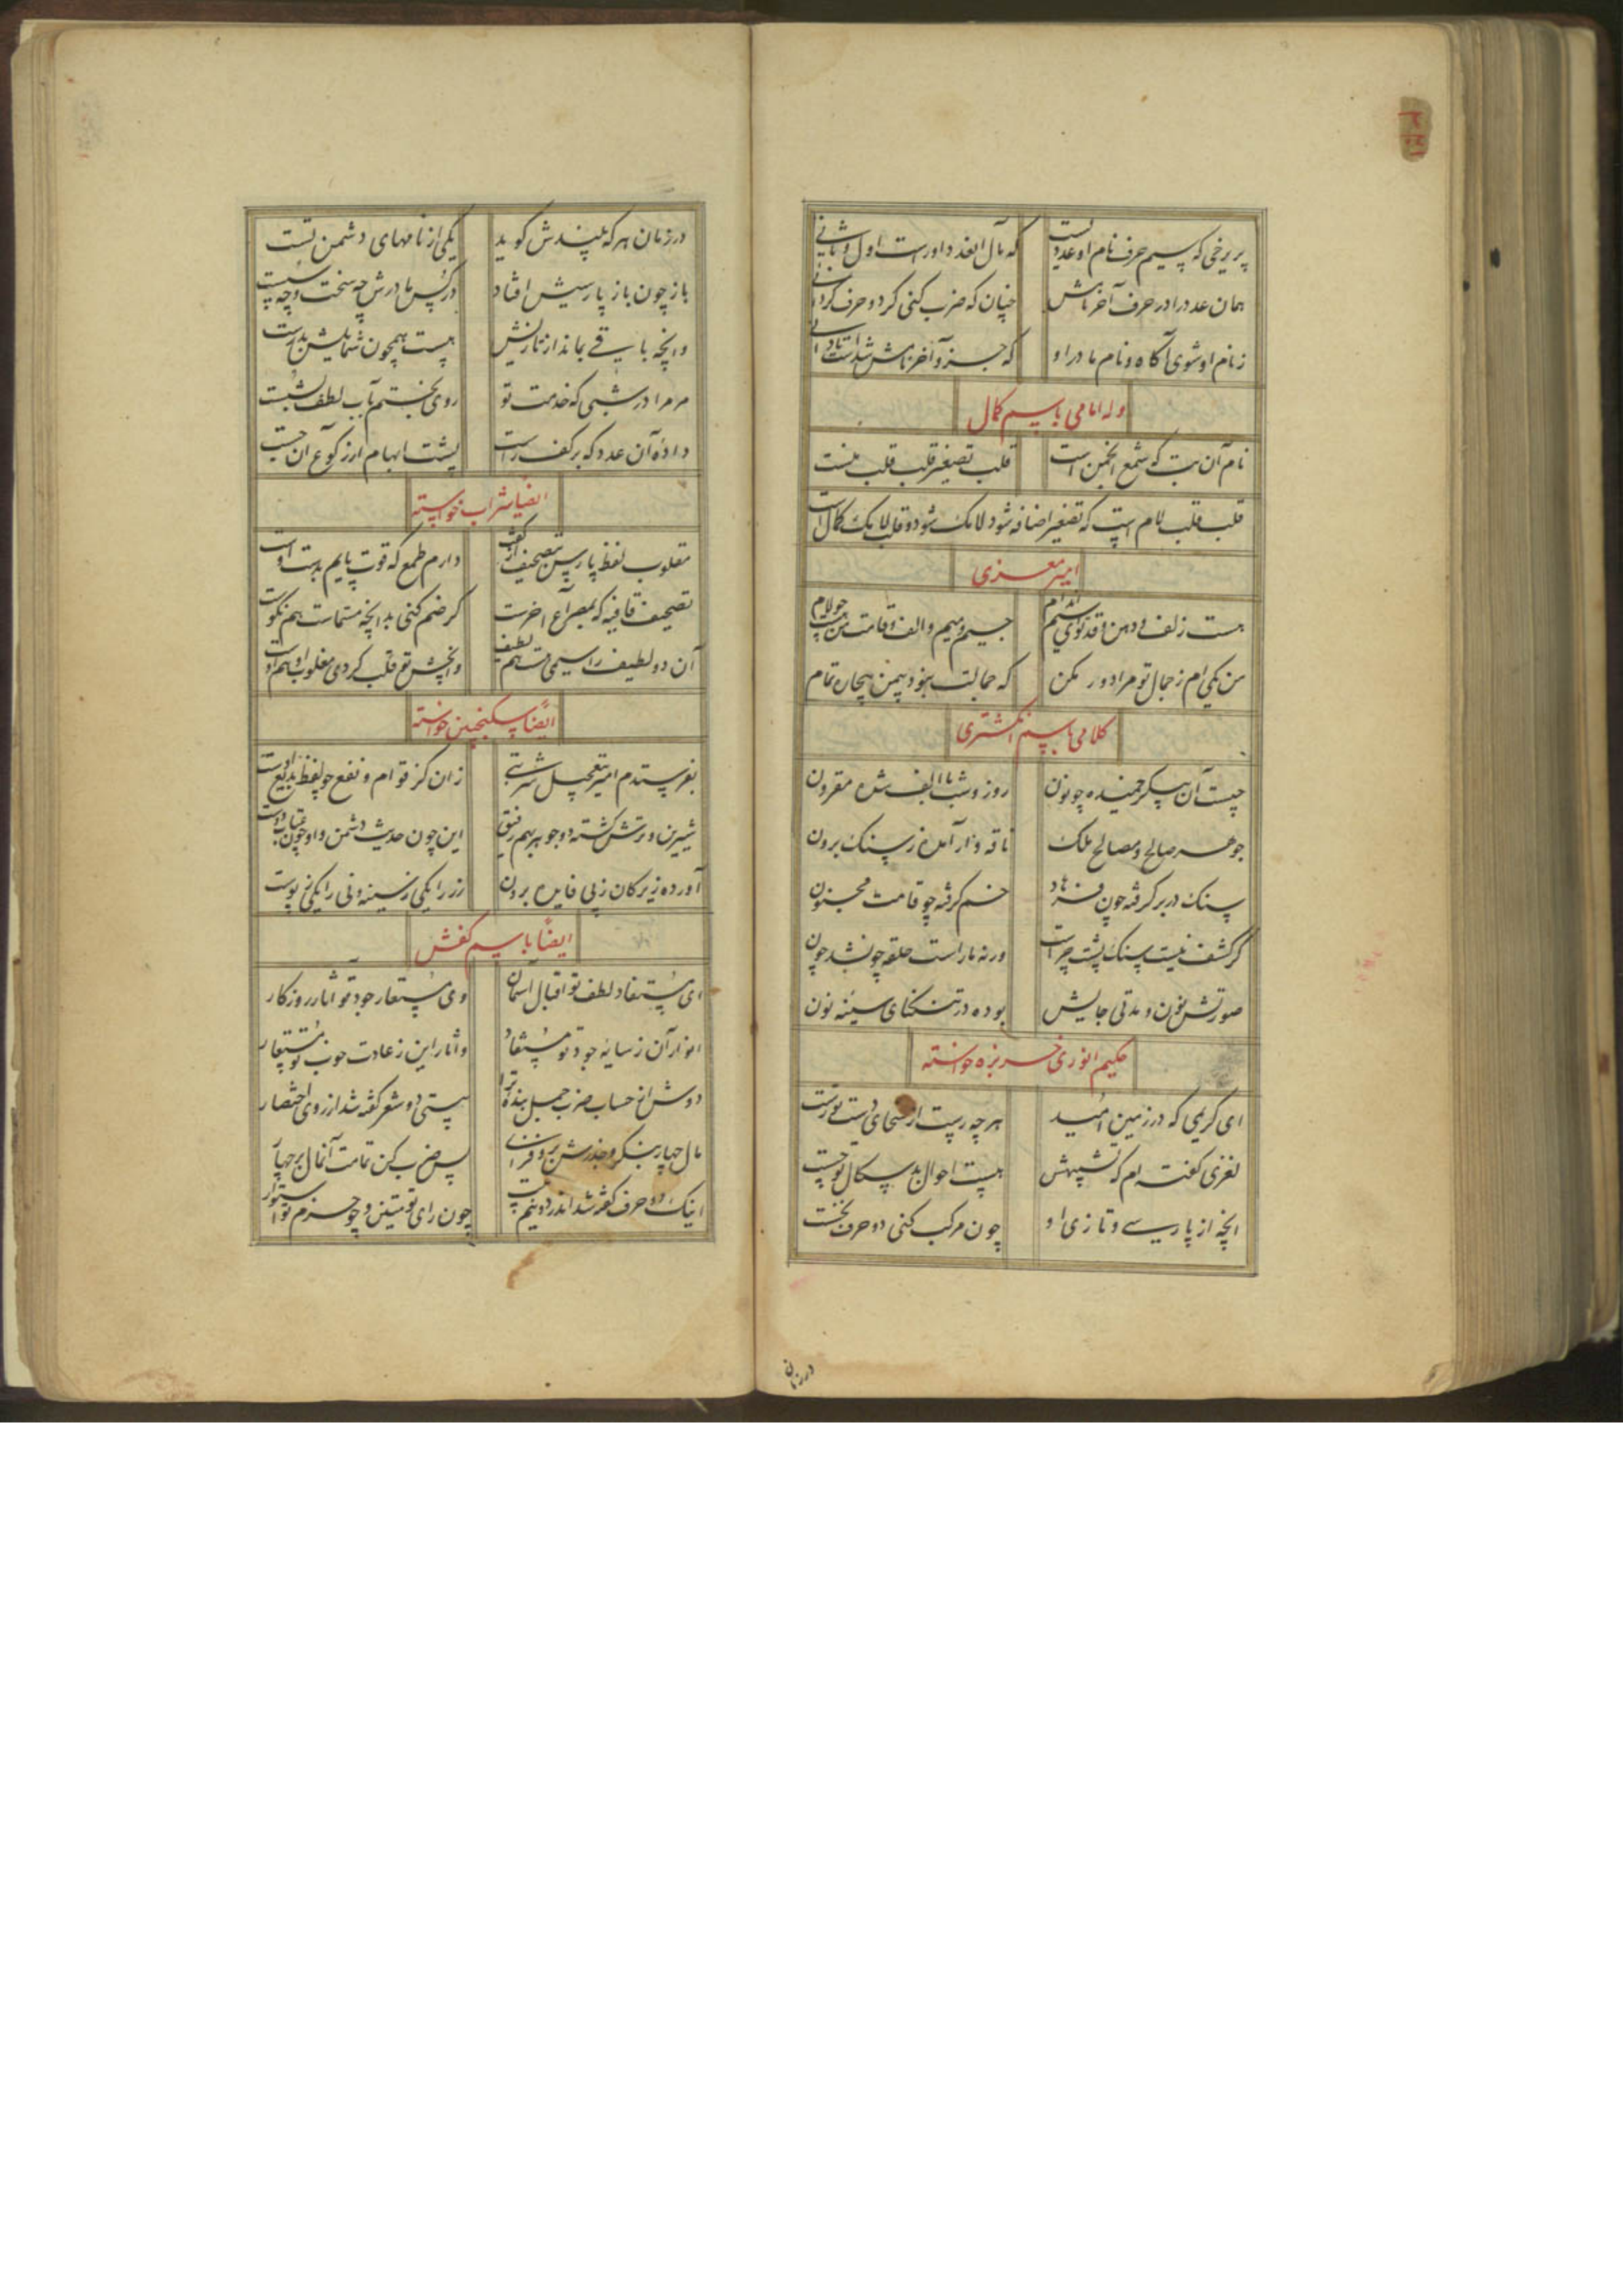 پریرخی که سیم حرف نام او عددیست
که مال آن عدد اورست اول و ثانی
همان عدد را در حرف آخر نامش
چنان که ضرب کنی کرد و حرف کردانی
ز نام او شوی آکاه و نام مادر او
که جزو آخر نامش شداست تا دانی
وله امامی باسم کمال
نام آن بت که شمع انجمن است
قلب تصغیر قلب قلب منست
قلب قلب لام است که تصغیر اضافه شود لامک شود و قلب لامک کمال است
امیر معزی
هست زلف و دهن و قد تو ای سیم اندام
جیم و میم و الف و قامت من هست چو لام
من یکی ام ز جمال تو مرا دور مکن
که جمالت نبود بی من بیچاره تمام
کلامی باسم انکشتری
چیست آن پیکر خمیده چو نون
روز و شب با الف شده مقرون
جوهر صالح و مصالح ملک
ناقه وار آمده ز سنک برون
سنک در بر کرفته چون فرهاد
خم کرفته چو قامت مجنون
کر کشف نیست سنک پشت چراست
ور نه مار است حلقه چون شد چون
صورتش نون و مدتی جایش
بوده در تنکنای سینه نون
حکیم انوری خربزه خواسته
ای کریمی که در زمین امید
هر چه رست از سخای دست تو رست
لغزی کفته ام که تشبیهش
هست احوال بدسکال تو چست
انچه از پارسی و تازی او
چون مرکب کنی دو حرف نخست
در زمان
در زمان هر که بیندش کوید
یکی از نامهای دشمن تست
باز چون باز پارسیش افتاد
در کس مادرش چه سخت و چه سست
وانچه باقی بماند از تازیش
هست همچون شمایلش بدرست
مر مرا در شبی که خدمت تو
روی بختم بآب لطف بشست
دادۀ آن عدد که بر کف راست
پشت ابهام ار ز کوع آن جست
ایضا شراب خواسته
مقلوب لفظ پارسی بتصحیف از کفت
دارم طمع که قوت پایم بدست اوست
تصحیف قافیه که بمصراع آخرست
کر ضم کنی بدانچه مسماست هم نکوست
آن دو لطیف را سیمی هست هم لطیف
وانچش تو قلب کردی مقلوب او هم اوست
ایضا سکنجبین خواسته
بفرستدم امیر بتعجیل شربتی
زان کز قوام و نفع چو لفظ بدیع اوست
شیرین و ترش کشته دو جوهر بهم رفیق
این چون حدیث دشمن و او چون عتاب دوست
آورده زیرکان ز پی فایده برون
زر را یکی ز سینه و نی را یکی ز پوست
ایضا باسم کفش
ای مستفاد لطف تو اقبال آسمان
وی مستعار جود تو آثار روزکار
انوار آن ز سایه جود تو مستفاد
و اثار این ز عادت خوب تو مستعار
دوش از حساب ضرب جمل بنده ترا
بیتی دو شعر کفته شد از روی اختصار
مال چهار بنکر و جذرش برو فزای
پس ضرب کن تمامت آن مال بر چهار
اینک دو حرف کفته شد اندر دو نیم بیت
چون رای تو متین و چو حزم تو استوار